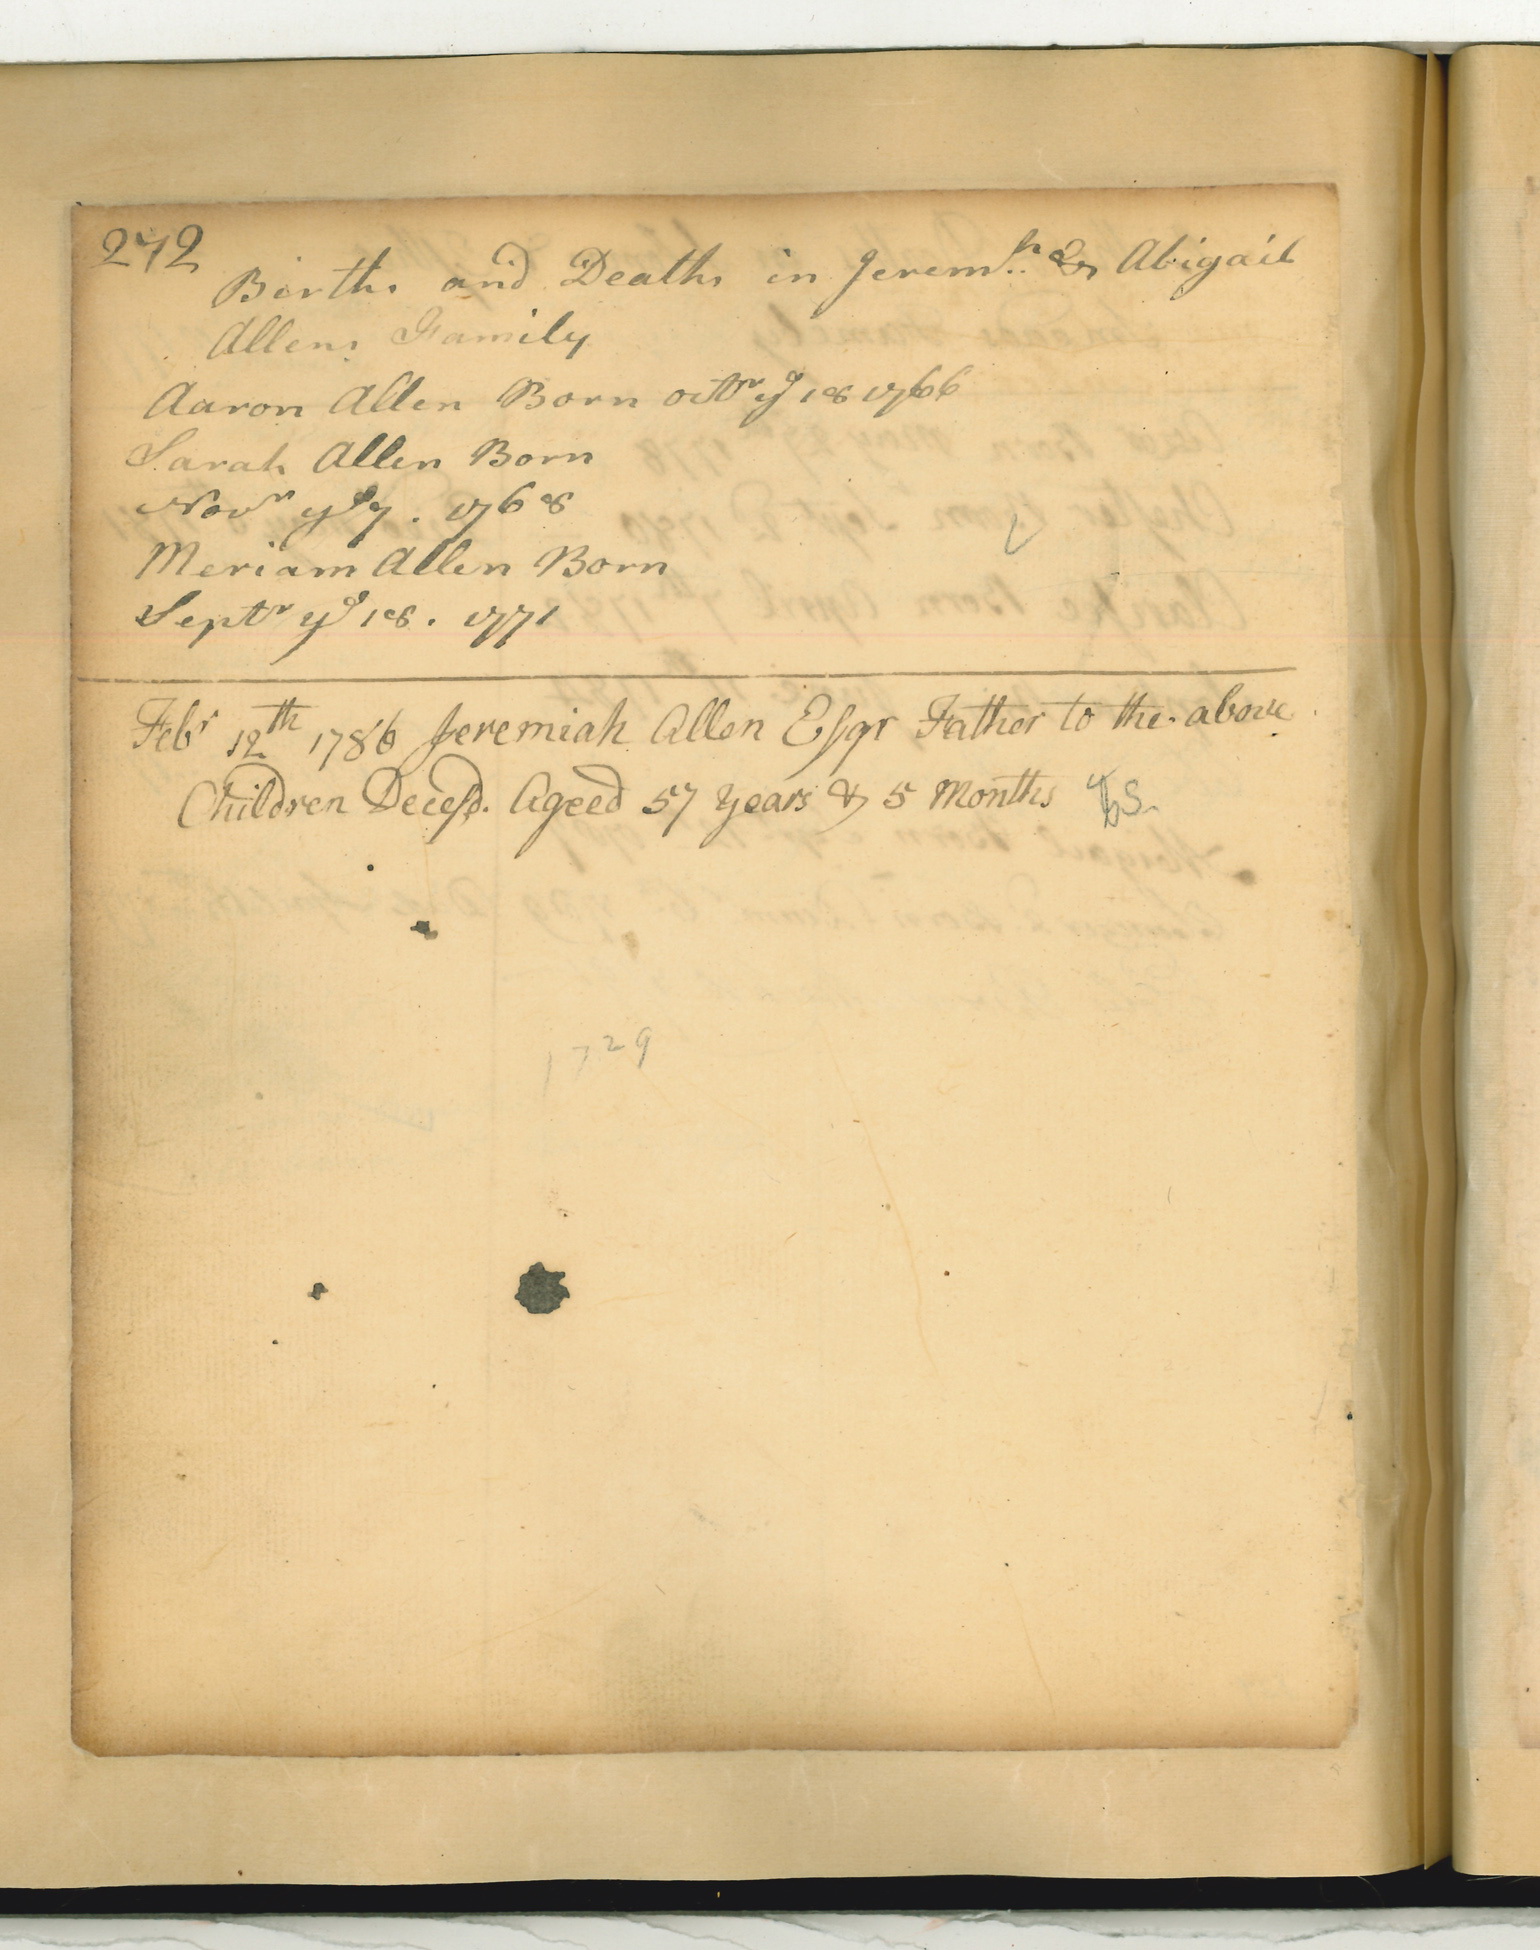 272
Births and Deaths in Jeremh. & Abigail
Allens Family
Aaron Allen Born octr ye 18 1766
Sarah Allen Born
Novr ye 7. 1768
Meriam Allen Born
Septr ye 18. 1771
Febr 12th 1786 Jeremiah Allen Esqr Father to the above
Children Decesd. Ageed 57 years & 5 Months
1729